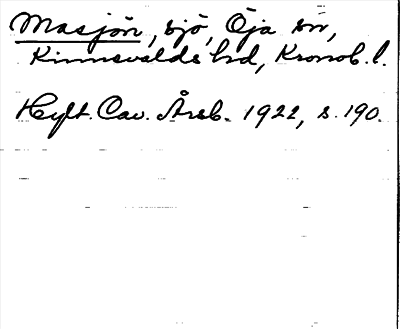 Masjön, sjö, Öja sn,
Kinnevalds hd, Kronob. l.
Hylt. Cav. Årsb. 1922, s. 190.